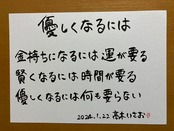 優しくなるには
金持ちになるには運が要る
賢くなるには時間が要る
優しくなるには何も要らない
2024.1.22 高木いさお